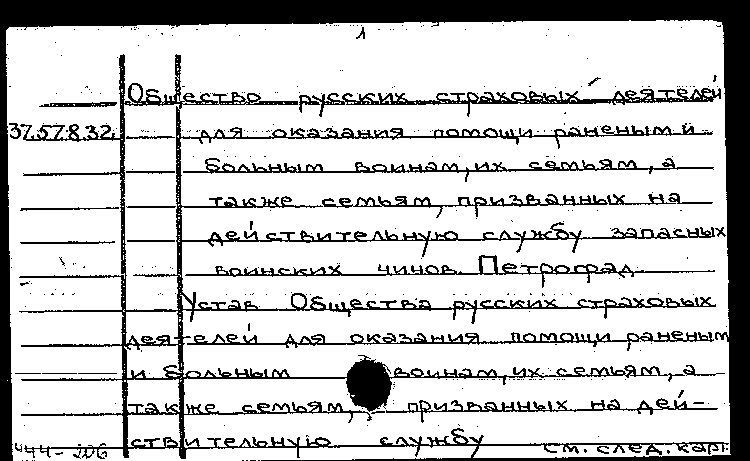 1
Общество русских страховых деятелей
37.57.8.32. для оказания помощи раненым и
больным воинам, их семьям, а
также семьям, призванных на
действительную службу запасных
воинских чинов. Петроград.
Устав Общества русских страховых
деятелей для оказания помощи раненым
и больным воинам, их семьям, а
также семьям, призванных на дей-
ствительную службу см. след. карт.
444-206